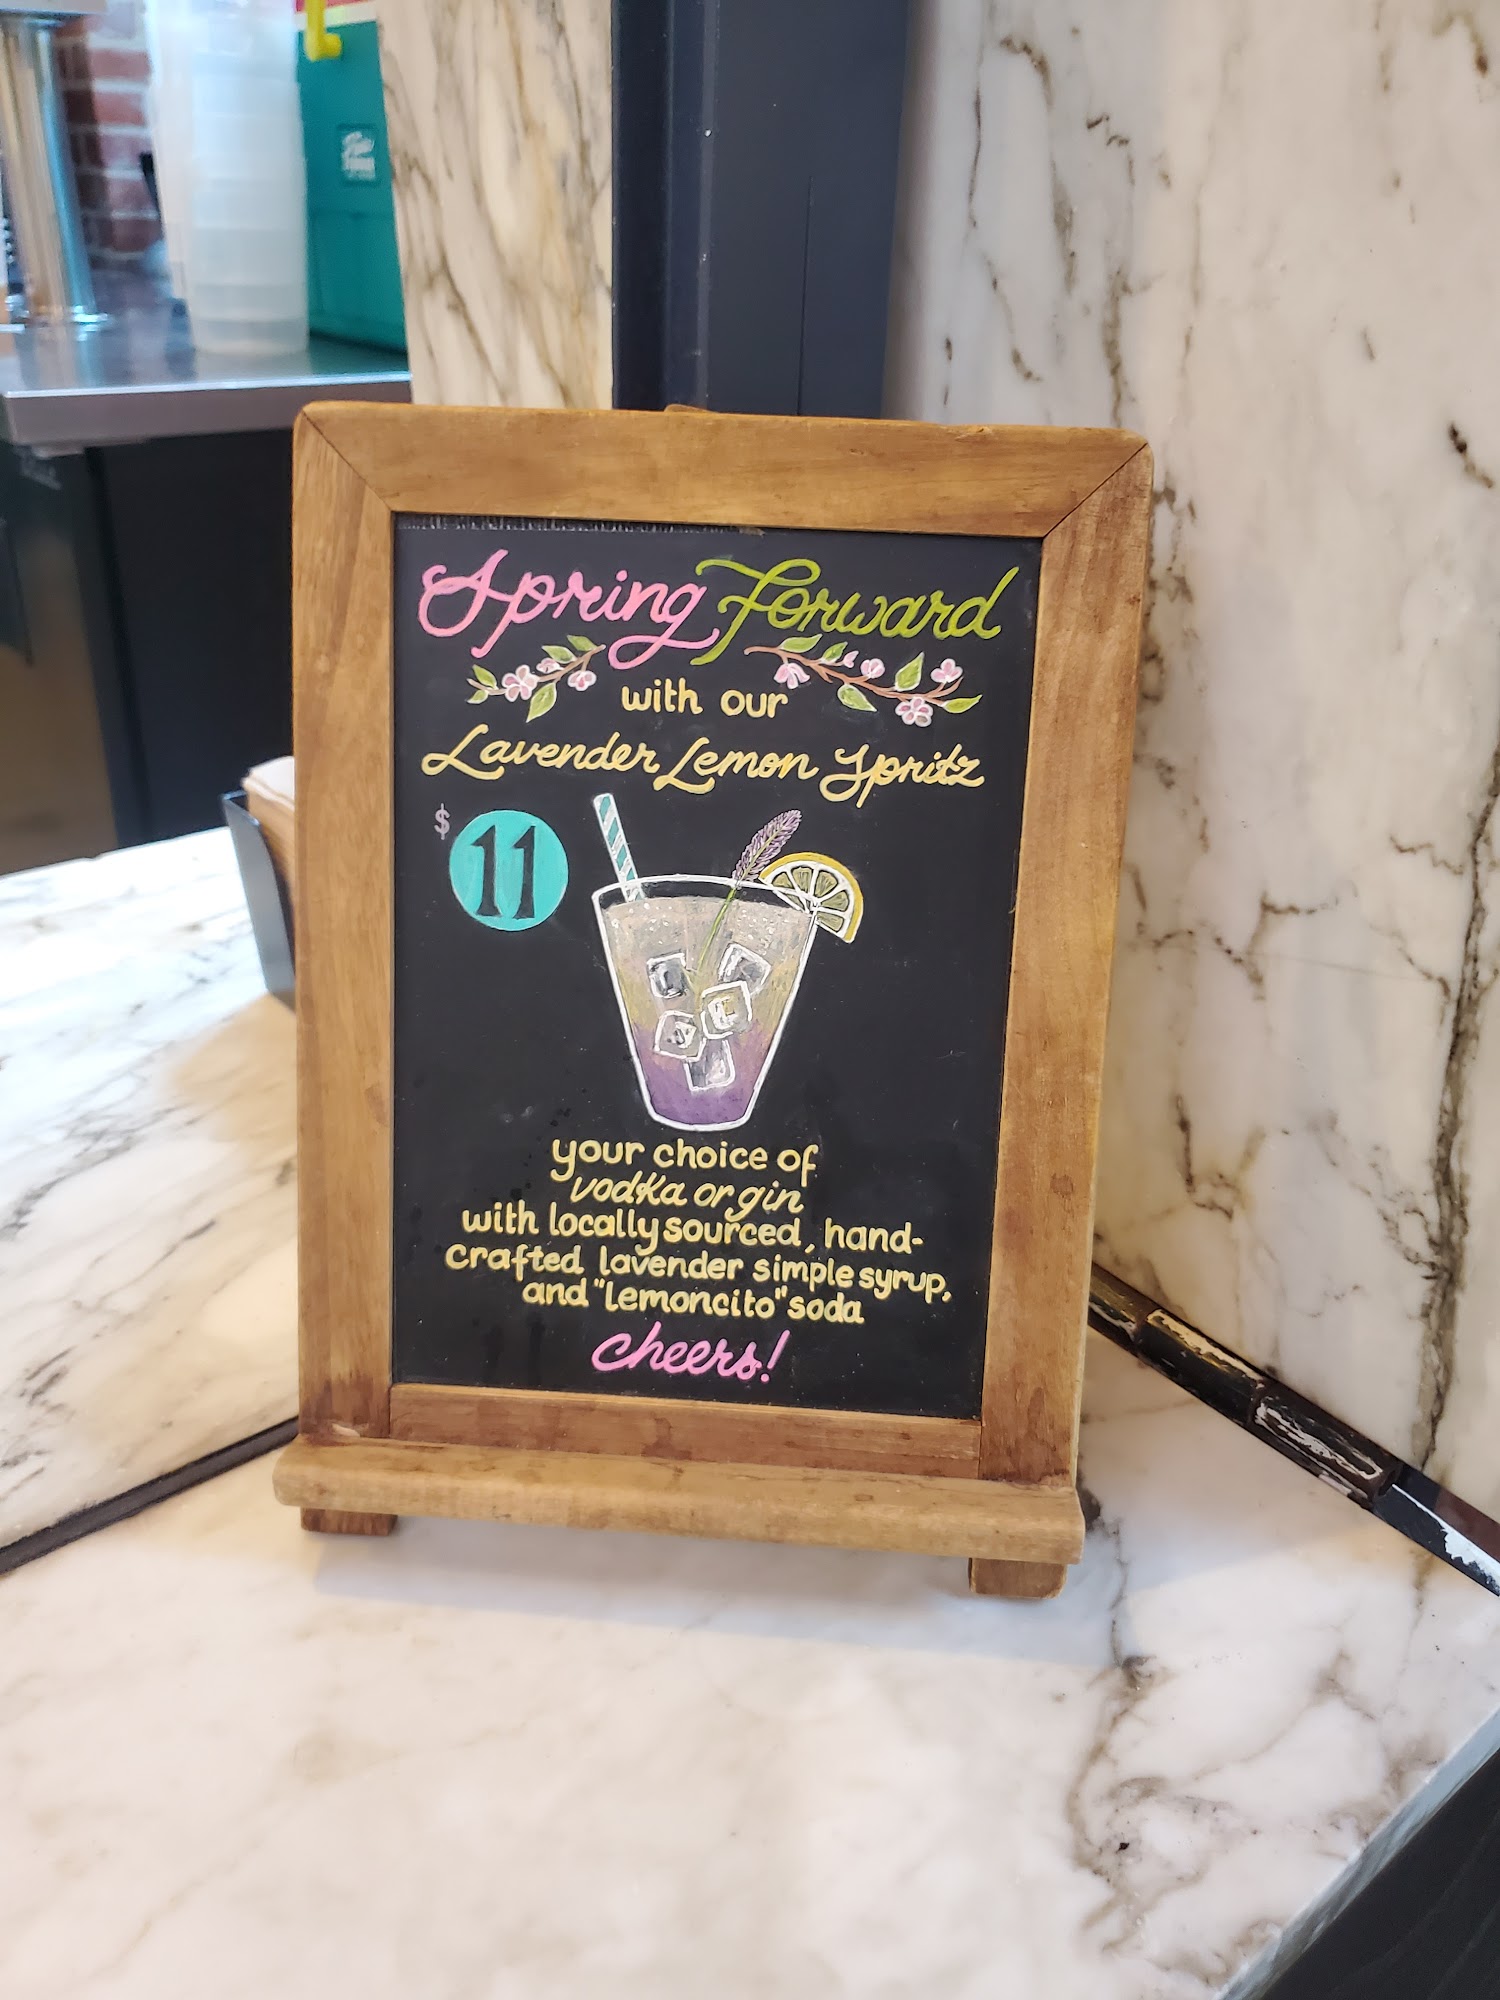 Spring Forward
with our
Lavender Lemon Spritz
$ 11
your choice of
vodka or gin
with locally sourced, hand-
crafted lavender simple syrup,
and "Lemoncito" soda
cheers!